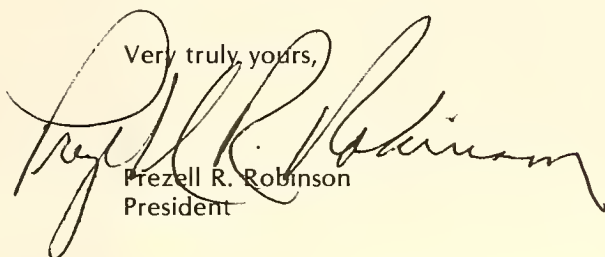 Very truly yours,
Prezell R. Robinson
Prezell R. Robinson
President